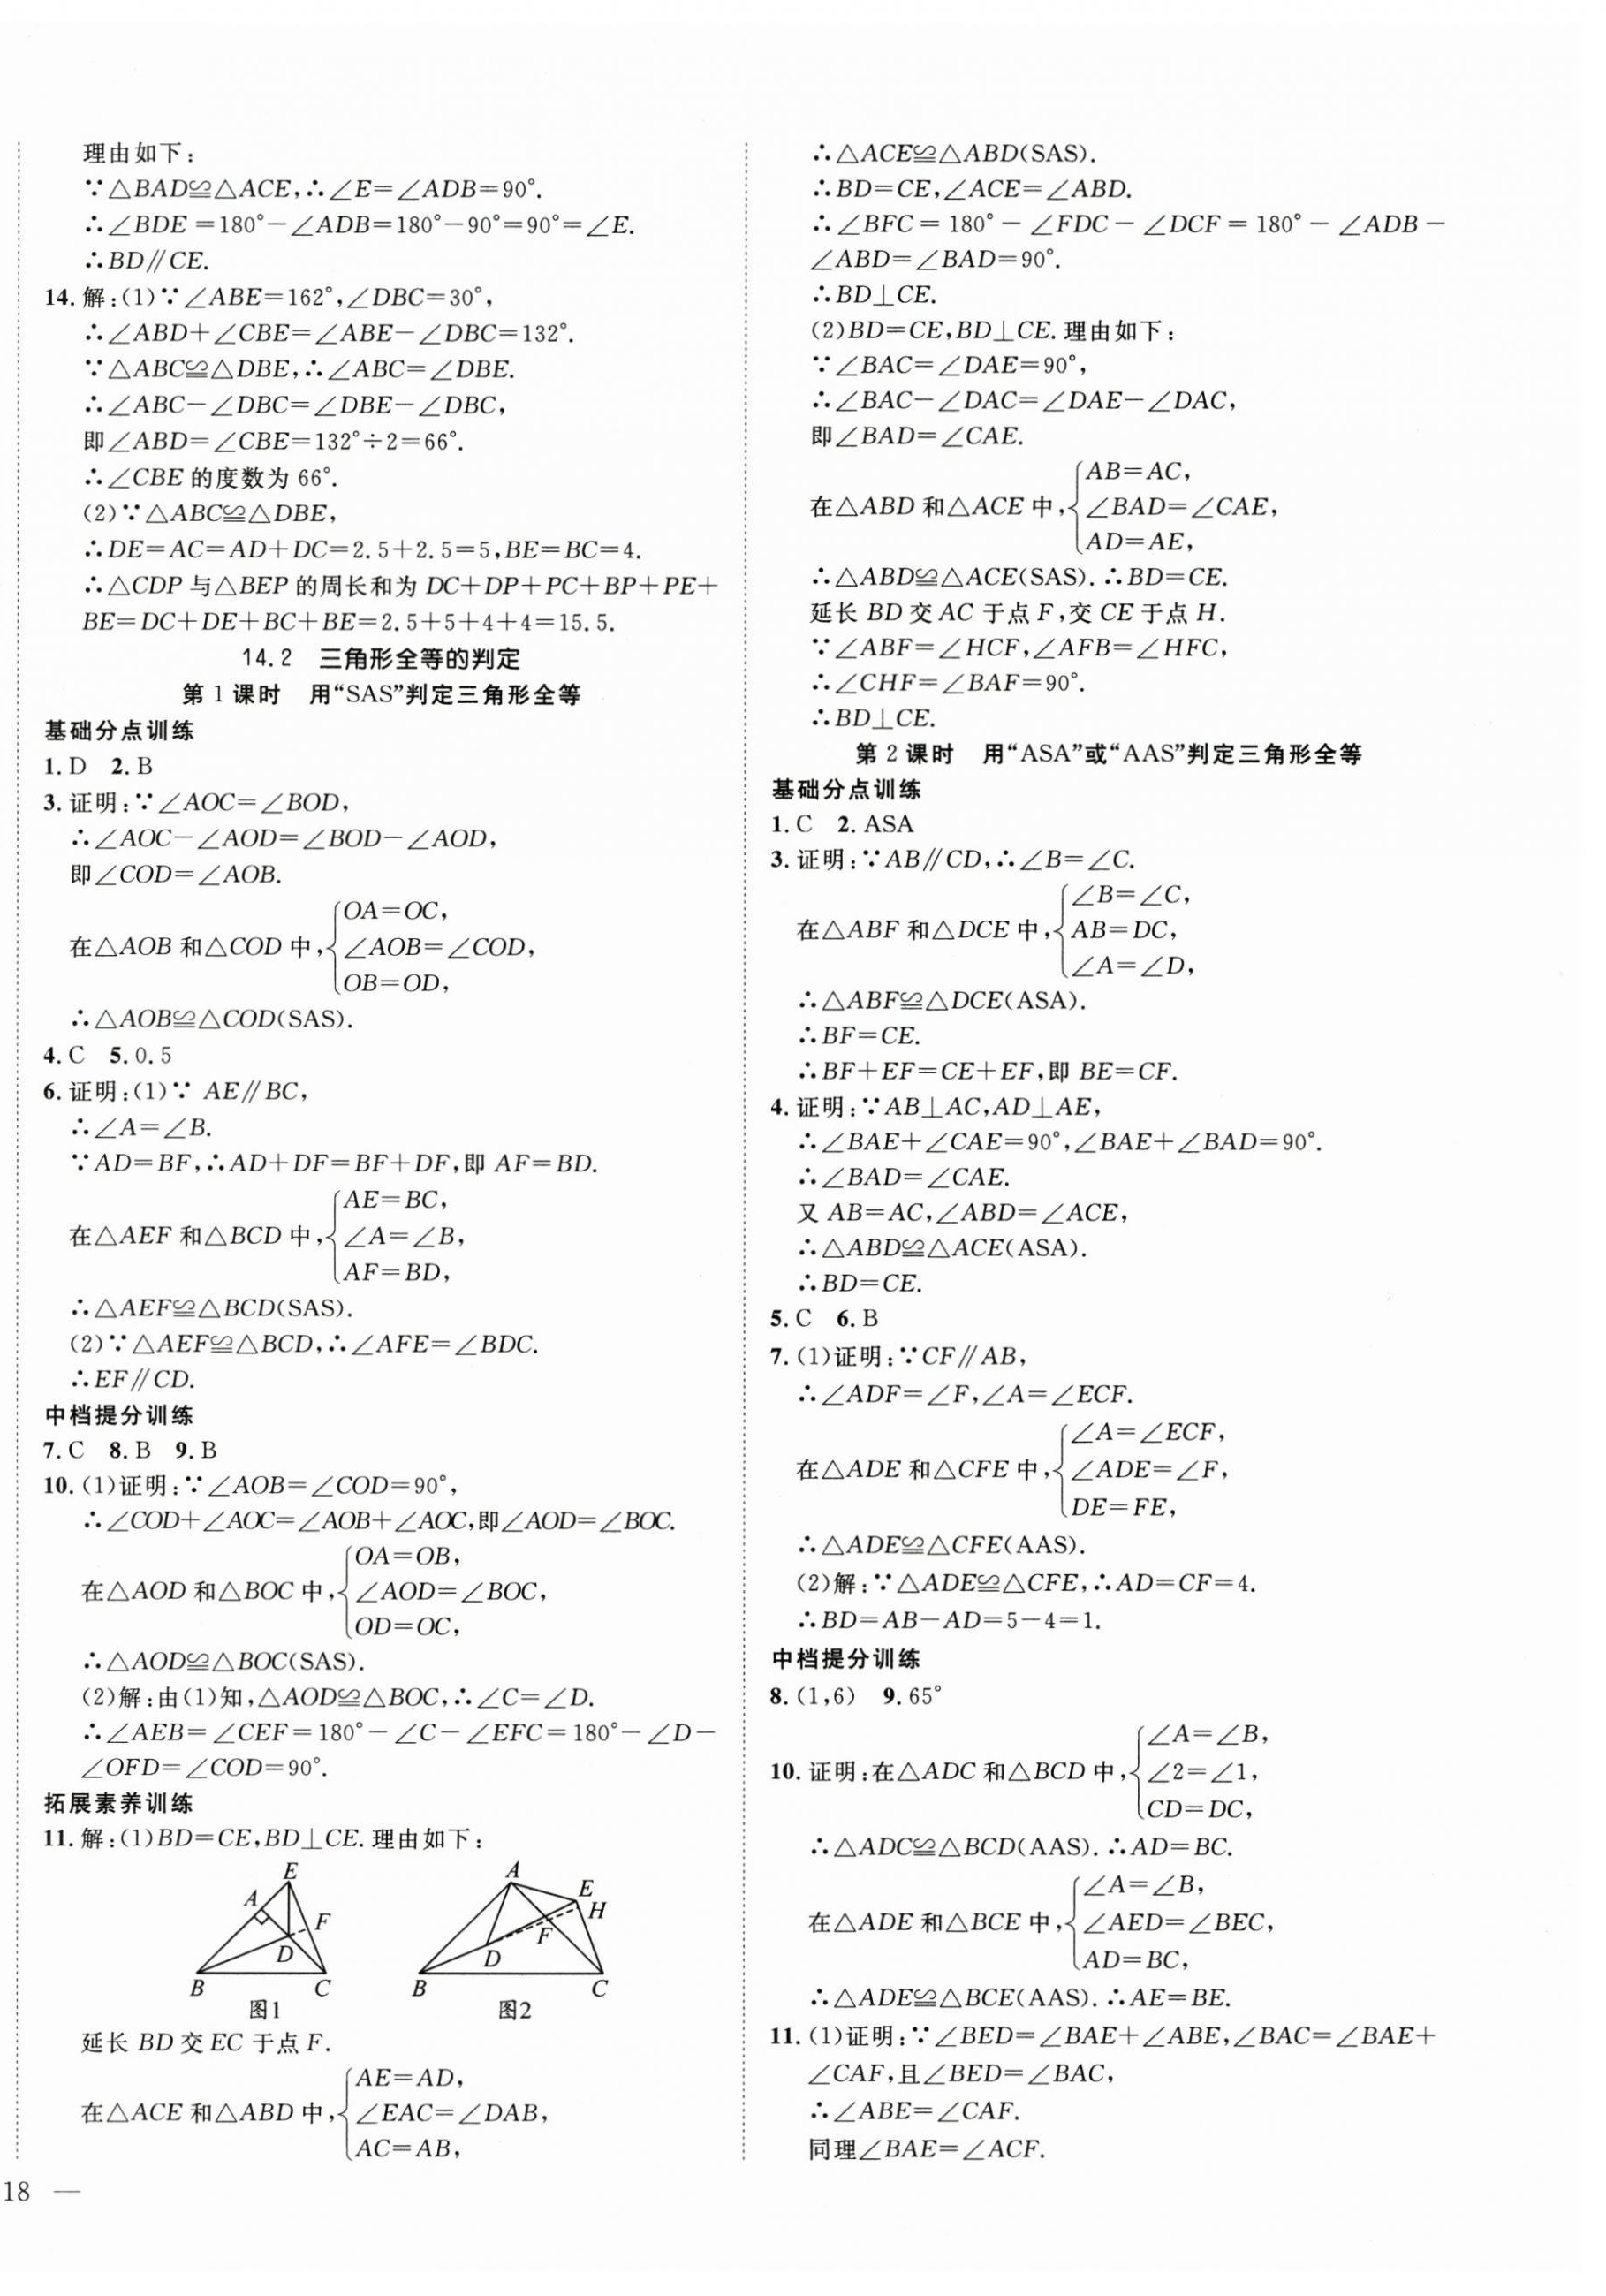 理由如下:
∵△BAD≌△ACE,∴∠E=∠ADB=90°.
∴∠BDE=180°-∠ADB=180°-90°=90°=∠E.
∴BD∥CE.
14.解:(1)∵∠ABE=162°,∠DBC=30°,
∴∠ABD+∠CBE=∠ABE-∠DBC=132°.
∵△ABC≌△DBE,∴∠ABC=∠DBE.
∴∠ABC-∠DBC=∠DBE-∠DBC,
即∠ABD=∠CBE=132°÷2=66°.
∴∠CBE的度数为66°.
(2)∵△ABC≌△DBE,
∴DE=AC=AD+DC=2.5+2.5=5,BE=BC=4.
∴△CDP与△BEP的周长和为DC+DP+PC+BP+PE+
BE=DC+DE+BC+BE=2.5+5+4+4=15.5.
14.2 三角形全等的判定
第1课时 用“SAS”判定三角形全等
基础分点训练
1.D 2.B
3.证明:∵∠AOC=∠BOD,
∴∠AOC-∠AOD=∠BOD-∠AOD,
即∠COD=∠AOB.
OA=OC,
在△AOB和△COD中,{∠AOB=∠COD,
OB=OD,
∴△AOB≌△COD(SAS).
4.C 5.0.5
6.证明:(1)∵ AE∥BC,
∴∠A=∠B.
∵AD=BF,∴AD+DF=BF+DF,即AF=BD.
AE=BC,
在△AEF和△BCD中,{∠A=∠B,
AF=BD,
∴△AEF≌△BCD(SAS).
(2)∵△AEF≌△BCD,∴∠AFE=∠BDC.
∴EF∥CD.
中档提分训练
7.C 8.B 9.B
10.(1)证明:∵∠AOB=∠COD=90°,
∴∠COD+∠AOC=∠AOB+∠AOC,即∠AOD=∠BOC.
OA=OB,
在△AOD和△BOC中,{∠AOD=∠BOC,
OD=OC,
∴△AOD≌△BOC(SAS).
(2)解:由(1)知,△AOD≌△BOC,∴∠C=∠D.
∴∠AEB=∠CEF=180°-∠C-∠EFC=180°-∠D-
∠OFD=∠COD=90°.
拓展素养训练
11.解:(1)BD=CE,BD⊥CE.理由如下:
E
A
F
D
B C
图1
A
E
H
F
D
B C
图2
延长BD交EC于点F.
AE=AD,
在△ACE和△ABD中,{∠EAC=∠DAB,
AC=AB,
18 —
∴△ACE≌△ABD(SAS).
∴BD=CE,∠ACE=∠ABD.
∴∠BFC=180°-∠FDC-∠DCF=180°-∠ADB-
∠ABD=∠BAD=90°.
∴BD⊥CE.
(2)BD=CE,BD⊥CE.理由如下:
∵∠BAC=∠DAE=90°,
∴∠BAC-∠DAC=∠DAE-∠DAC,
即∠BAD=∠CAE.
AB=AC,
在△ABD和△ACE中,{∠BAD=∠CAE,
AD=AE,
∴△ABD≌△ACE(SAS).∴BD=CE.
延长BD交AC于点F,交CE于点H.
∵∠ABF=∠HCF,∠AFB=∠HFC,
∴∠CHF=∠BAF=90°.
∴BD⊥CE.
第2课时 用“ASA”或“AAS”判定三角形全等
基础分点训练
1.C 2.ASA
3.证明:∵AB∥CD,∴∠B=∠C.
∠B=∠C,
在△ABF和△DCE中,{AB=DC,
∠A=∠D,
∴△ABF≌△DCE(ASA).
∴BF=CE.
∴BF+EF=CE+EF,即BE=CF.
4.证明:∵AB⊥AC,AD⊥AE,
∴∠BAE+∠CAE=90°,∠BAE+∠BAD=90°.
∴∠BAD=∠CAE.
又AB=AC,∠ABD=∠ACE,
∴△ABD≌△ACE(ASA).
∴BD=CE.
5.C 6.B
7.(1)证明:∵CF∥AB,
∴∠ADF=∠F,∠A=∠ECF.
∠A=∠ECF,
在△ADE和△CFE中,{∠ADE=∠F,
DE=FE,
∴△ADE≌△CFE(AAS).
(2)解:∵△ADE≌△CFE,∴AD=CF=4.
∴BD=AB-AD=5-4=1.
中档提分训练
8.(1,6) 9.65°
∠A=∠B,
10.证明:在△ADC和△BCD中,{∠2=∠1,
CD=DC,
∴△ADC≌△BCD(AAS).∴AD=BC.
∠A=∠B,
在△ADE和△BCE中,{∠AED=∠BEC,
AD=BC,
∴△ADE≌△BCE(AAS).∴AE=BE.
11.(1)证明:∵∠BED=∠BAE+∠ABE,∠BAC=∠BAE+
∠CAF,且∠BED=∠BAC,
∴∠ABE=∠CAF.
同理∠BAE=∠ACF.